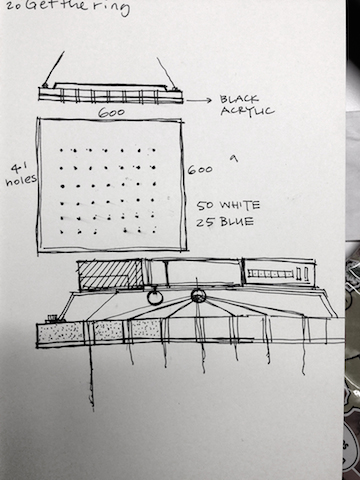 20 Get the ring
BLACK
ACRYLIC
600
41
holes
600
50 WHITE
25 BLUE